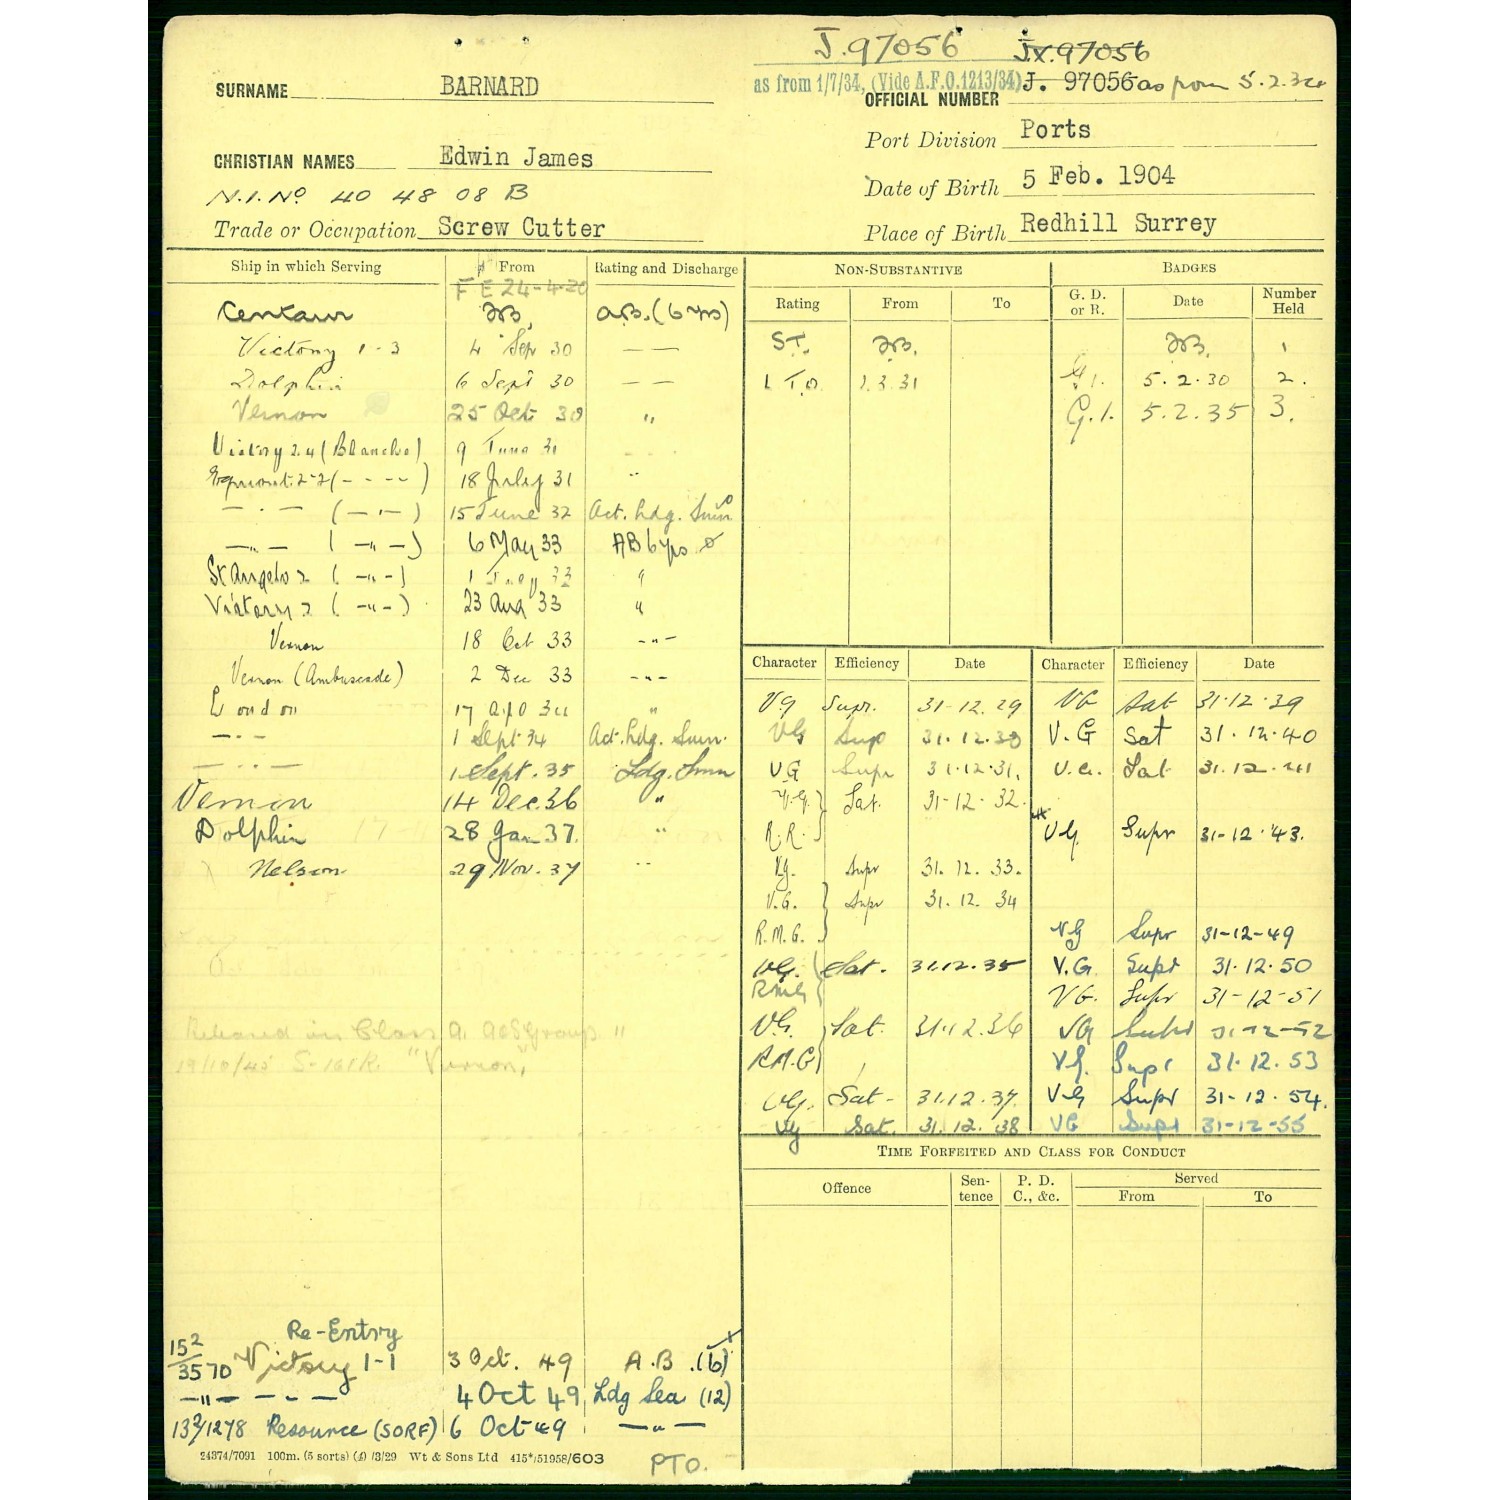 J.97056 JX.97056
as from 1/7/34, (Vide A.F.O.1213/34) J. 97056 as from 5.2.34
SURNAME BARNARD
OFFICIAL NUMBER
Port Division Ports
CHRISTIAN NAMES Edwin James
Date of Birth 5 Feb. 1904
N.I.No 40 48 08 B
Trade or Occupation Screw Cutter
Place of Birth Redhill Surrey
Ship in which Serving From Rating and Discharge
F E 24-4-20
Centaur A.B. (6 yrs)
Victory 1-3 4 Sep 30 — —
Dolphin 6 Sept 30 — —
Vernon 25 Oct 30 "
Victory 2.4 (Blanche) 9 June 31
Egmont 2-2 (- - - -) 18 July 31 "
— . — (— . —) 15 June 32 Act. Ldg. Smn
— " — (— " —) 6 May 33 AB 6 yrs
St Angelo 2 (— " —) 1 33 "
Victory 2 (— " —) 23 Aug 33 "
Vernon 18 Oct 33 - " -
Vernon (Ambuscade) 2 Dec 33 - " -
London 17 Apl 34 "
— . — 1 Sept 34 Act. Ldg. Smn.
— . — 1 Sept. 35 Ldg. Smn
Vernon 14 Dec. 36 "
Dolphin 28 Jan 37. "
Nelson 29 Nov. 37 "
Released in Class A.
19/10/45 "Vernon"
Re-Entry
152/3570 Victory 1-1 3 Oct. 49 A.B. (6)
— " — — . — 4 Oct 49 Ldg Sea (12)
132/1278 Resource (SORF) 6 Oct 49 — " —
24374/7091 100m. (5 sorts) (4) /3/29 Wt & Sons Ltd 415*/51958/603
PTO.
NON-SUBSTANTIVE
Rating From To
S.T.
L T.O. 1.3.31
BADGES
G. D. or R. Date Number Held
1
G.1. 5.2.30 2.
G.1. 5.2.35 3.
Character Efficiency Date
V.G Supr. 31-12.29
VG Sup 31.12.30
V.G Supr 31.12.31.
V.G. Sat. 31-12-32.
R.R.
V.G. Supr 31.12.33.
V.G. Supr 31.12.34
R.M.G.
V.G. Sat. 31.12.35
RMG
V.G. Sat. 31.12.36
R.M.G
V.G. Sat- 31.12.37.
VG Sat. 31.12.38
Character Efficiency Date
VG Sat 31.12.39
V.G Sat 31.12.40
V.G. Sat 31.12.41
V.G. Supr 31-12-43.
VG Supr 31-12-49
V.G. Supr 31.12.50
V.G. Supr 31-12-51
VG Supr 31-12-52
V.G. Supr 31.12.53
V.G Supr 31-12.54.
VG Supr 31-12-55
TIME FORFEITED AND CLASS FOR CONDUCT
Offence Sentence P. D. C., &c. Served
From To